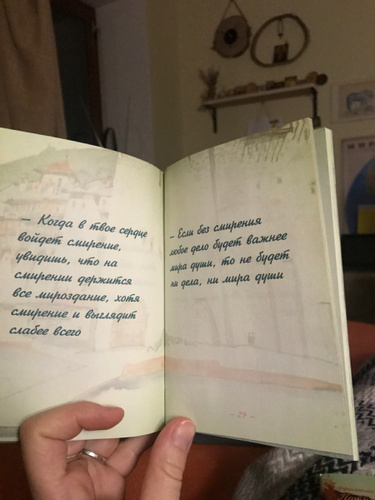 — Когда в твое сердце
войдет смирение,
увидишь, что на
смирении держится
все мироздание, хотя
смирение и выглядит
слабее всего
— Если без смирения
любое дело будет важнее
мира души, то не будет
ни дела, ни мира души
- 29 -